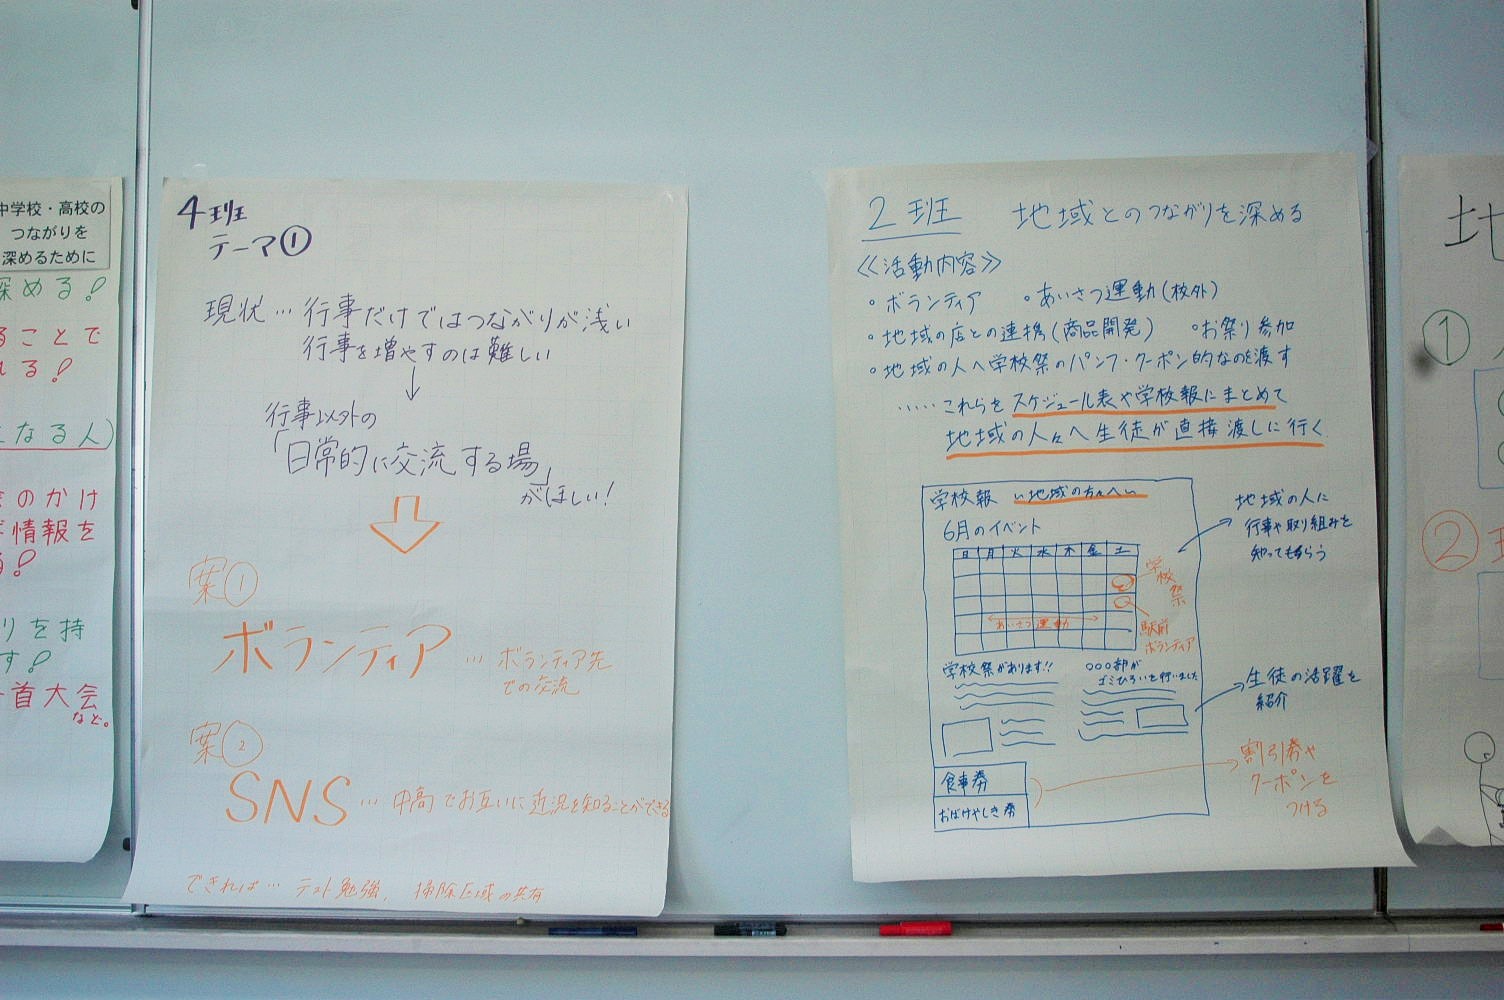 中学校・高校の
つながりを
深めるために
深める!
ることで
れる!
なる人)
のかけ
情報を
る!
りを持
す!
首大会
など。
4班
テーマ①
現状…行事だけではつながりが浅い
行事を増やすのは難しい
↓
行事以外の
「日常的に交流する場」
がほしい!
案①
ボランティア…ボランティア先
での交流
案②
SNS…中高でお互いに近況を知ることができる
できれば… テスト勉強, 掃除区域の共有
2班 地域とのつながりを深める
≪活動内容≫
・ボランティア ・あいさつ運動(校外)
・地域の店との連携(商品開発) ・お祭り参加
・地域の人へ学校祭のパンフ・クーポン的なのを渡す
……これらをスケジュール表や学校報にまとめて
地域の人々へ生徒が直接渡しに行く
学校報 〃地域の方々へ〃
6月のイベント
日 月 火 水 木 金 土
学校祭
あいさつ運動
駅前
ボランティア
学校祭があります!!
○○○部が
ゴミひろいを行いました
食事券
おばけやしき券
地域の人に
行事や取り組みを
知ってもらう
生徒の活躍を
紹介
割引券や
クーポンを
つける
地
①
②